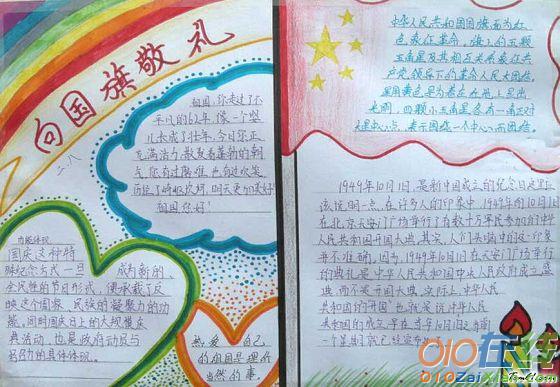 向国旗敬礼
二.八
祖国,你走过了不
平凡的62年,像一个婴
儿长成了壮年,今日您正
充满活力,散发着蓬勃的朝
气,您有过磨难,也有过欢笑,
历经了崎岖坎坷,明天更加美好!
祖国您好!
功能体现:
国庆这种特
殊纪念方式一旦
成为新的、
全民性的节日形式,便承载了反
映这个国家、民族的凝聚力的功
能。同时国庆日上的大规模庆
典活动,也是政府动员与
号召力的具体体现。
热爱自己
的祖国是理所
当然的事。
中华人民共和国国旗面为红
色象征革命,旗上的五颗
五角星及其相互关系象征共
产党领导下的革命人民大团结。
星用黄色是为着在红地上显出
光明,四颗小五角星各有一尖正对
大星中心点,表示围绕一个中心而团结。
1949年10月1日,是新中国成立的纪念日。这里应
该说明一点,在许多人的印象中,1949年的10月1日
在北京天安门广场举行了有数十万军民参加的中华
人民共和国开国大典。其实,人们头脑中的这一印象
并不准确。因为,1949年10月1日在天安门广场举行
的典礼是中华人民共和国中央人民政府成立盛
典,而不是开国大典。实际上,中华人民
共和国的“开国”,也就是说中华人民
共和国的成立,早在当年10月1日之前
一个星期就已经宣布过了。
010在线
010Zai